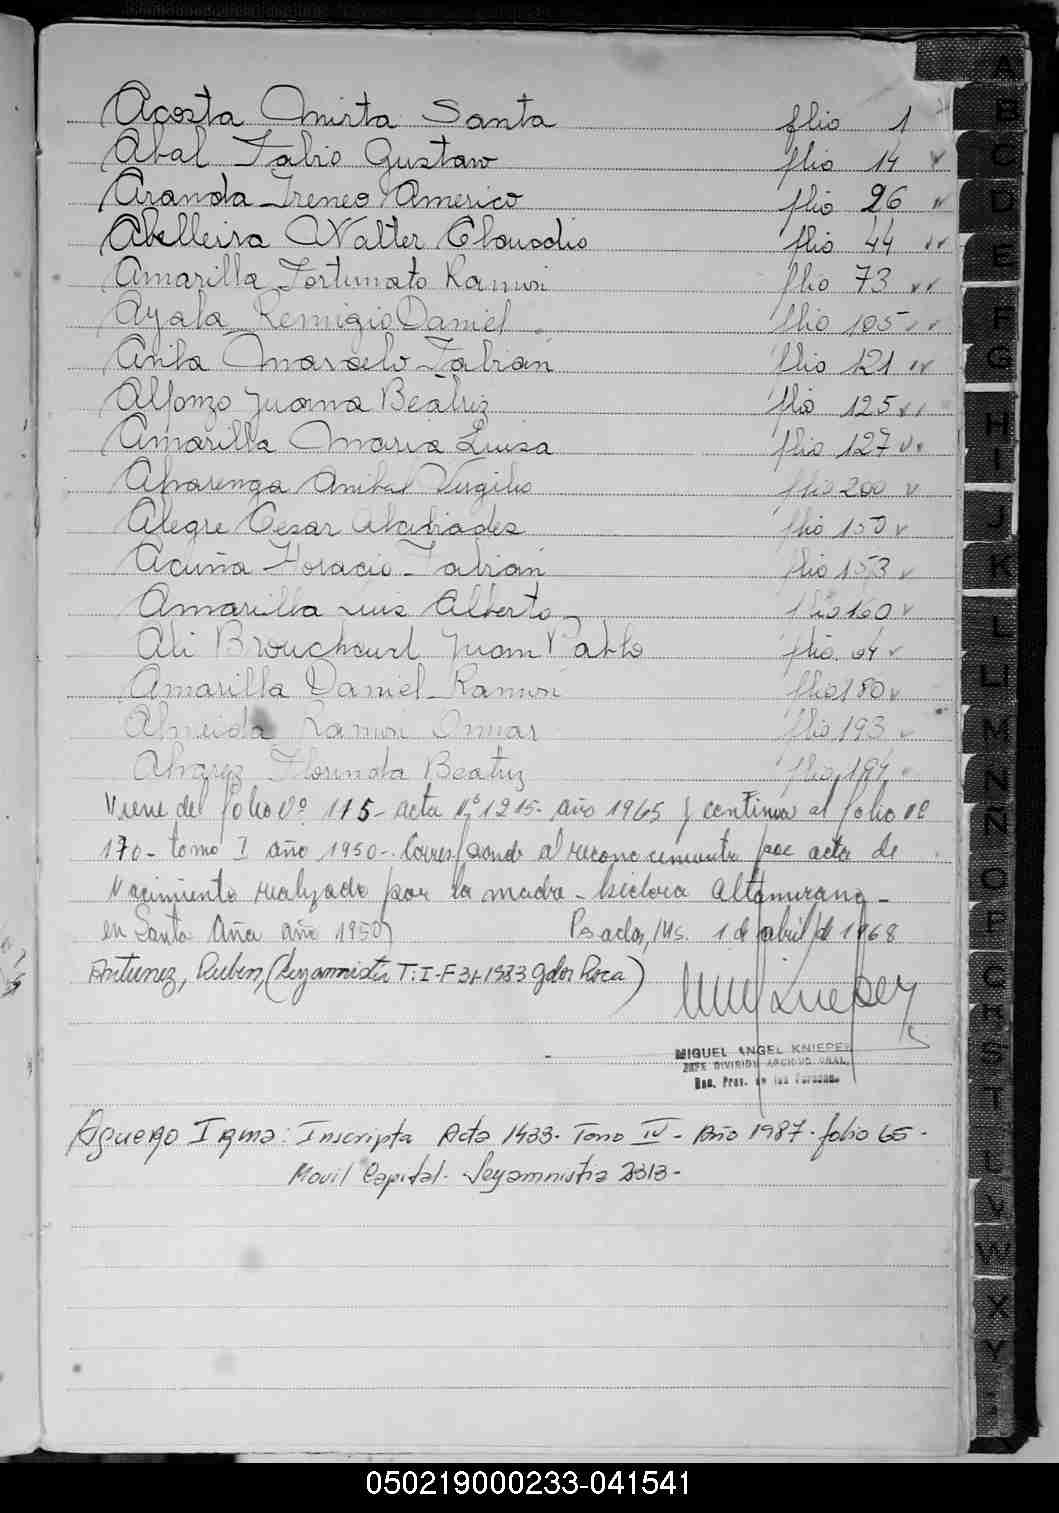 Acosta Mirta Santa folio 1
Abal Fabio Gustavo folio 14
Aranda Ireneo Americo folio 26
Abelleira Walter Claudio folio 44
Amarilla Fortunato Ramon folio 73
Ayala Remigio Daniel folio 105
Avila Marcelo Fabian folio 121
Alfonzo Juana Beatriz folio 125
Amarilla Maria Luisa folio 127
Alvarenga Anibal Virgilio folio 200
Alegre Cesar Alcibiades folio 150
Acuña Horacio Fabian folio 153
Amarilla Luis Alberto folio 160
Ali Brouchoud Juan Pablo folio 64
Amarilla Daniel Ramon folio 180
Almeida Ramon Omar folio 193
Alvarez Florinda Beatriz folio 194
Viene del folio Nº 115- acta Nº 1215- año 1965 y continua al folio Nº
170- tomo I año 1950-. Corresponde al reconocimiento por acta de
Nacimiento realizado por la madre - Isidora Altamirano -
en Santa Ana año 1950) Posadas, Ms. 1 de abril de 1968
Antunez, Ruben, (Leyamnistia T: I-F 31-1983 Gdor Roca)
MIGUEL ANGEL KNIEPER
JEFE DIVISION ARCHIVO GRAL.
Reg. Prov. de las Personas
Aguero Irma: Inscripta Acta 1433- Tomo IV - Año 1987- folio 65-
Movil Capital- Leyamnistia 2313-
A
B
C
D
E
F
G
H
I
J
K
L
LL
M
N
Ñ
O
P
Q
R
S
T
U
V
W
X
Y
050219000233-041541